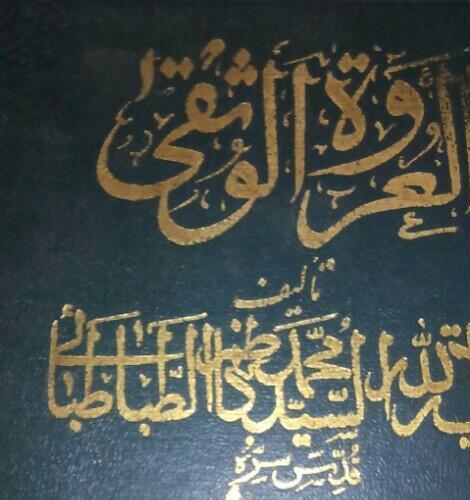 العروة الوثقى
تأليف
آية الله السيد محمد كاظم الطباطبائي
قدس سره